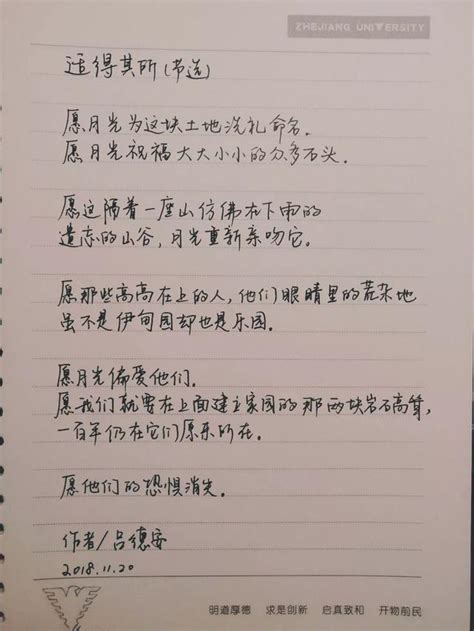 ZHEJIANG UNIVERSITY
适得其所(节选)
愿月光为这块土地洗礼命名.
愿月光祝福大大小小的众多石头.
愿这隔着一座山仿佛在下雨的
遗忘的山谷,月光重新亲吻它。
愿那些高高在上的人,他们眼睛里的荒杂地
虽不是伊甸园却也是乐园.
愿月光偏爱他们.
愿我们就要在上面建立家园的那两块岩石高耸,
一百年仍在它们原来所在.
愿他们的恐惧消失.
作者/吕德安
2018.11.20
明道厚德 求是创新 启真致和 开物前民